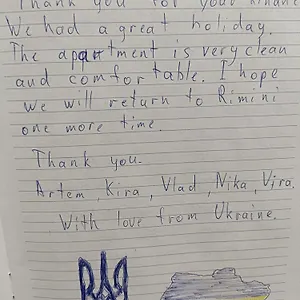 Thank you for your kindne
We had a great holiday.
The apartment is very clean
and comfortable. I hope
we will return to Rimini
one more time.
Thank you.
Artem, Kira, Vlad, Nika, Vira.
With love from Ukraine.